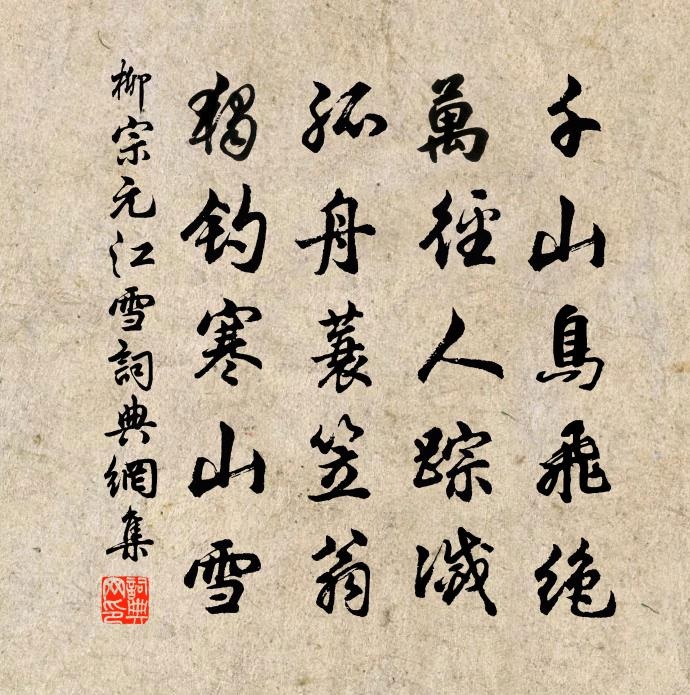 千山鳥飛絶
萬徑人踪滅
孤舟蓑笠翁
獨釣寒山雪
柳宗元江雪詞典網集
詞典网印